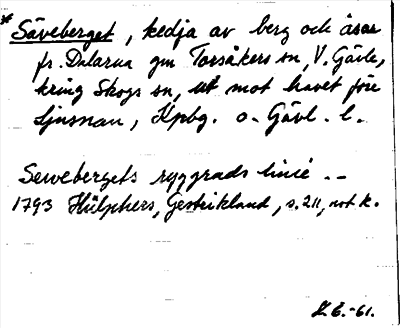 *Säveberget, kedja av berg och åsar
fr. Dalarna gm Torsåkers sn, V. Gävle,
kring Skogs sn, ut mot havet före
Ljusnan, Kpbg. o. Gävl. l.
Sevebergets ryggrads linië --
1793 Hülphers, Gestrikland, s. 211, not k.
-61.